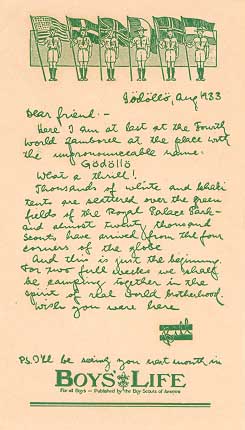 Gödöllö, Aug 1933
Dear friend:-
Here I am at last at the Fourth
World Jamboree at the place with
the unpronounceable name.
Gödöllö
What a thrill!
Thousands of white and khaki
tents are scattered over the green
fields of the Royal Palace Park-
and almost twenty thousand
Scouts have arrived from the four
corners of the globe
And this is just the beginning.
For two full weeks we shall
be camping together in the
spirit of real world brotherhood.
Wish you were here
P.S. I'll be seeing you next month in
BOYS' LIFE
For all Boys — Published by the Boy Scouts of America